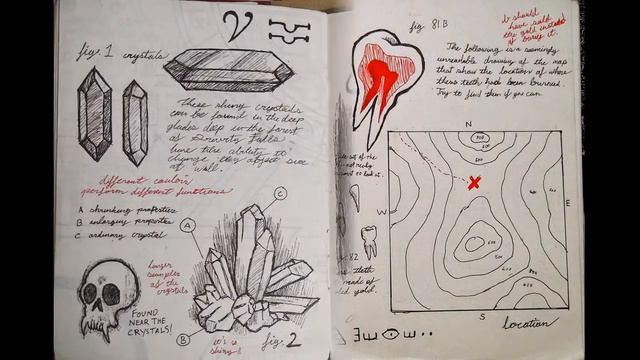 fig. 1 crystals
These shiny crystals
can be found in the deep
glades deep in the forest
of Gravity Falls
have the ability to
change they affect size
at will.
different colors
perform different functions
A shrinking properties
B enlarging properties
C ordinary crystal
A
C
B
larger
samples
of the
crystals
FOUND
NEAR THE
CRYSTALS!
it's so
shiny!
fig. 2
fig. 81B
I should
have sold
the gold instead
of bury it.
The following is a seemingly
unreadable drawing of the map
that show the location of where
these teeth had been burried.
Try to find them if you can.
N
W
E
S
82
teeth
made of
gold.
Location